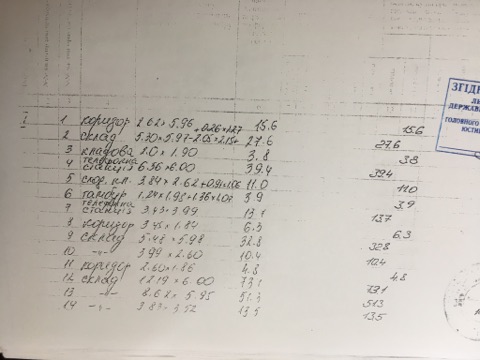 ЗГІДН
ДЕРЖАВН
ГОЛОВНОГО
ЮСТИ
1 коридор 2.62 x 5.96 15.6 15.6
2 склад 5.30 x 5.97 - 2.05 x 2.15 + 0.26 x 1.27 27.6 27.6
3 кладова 2.0 x 1.90 3.8 3.8
4 станція 6.56 x 6.00 39.4 39.4
5 2.62 + 0.91 x 1.06 11.0 11.0
6 тамбур 1.24 x 1.98 + 3.9 3.9
7 станція 3.43 x 3.99 13.7 13.7
8 коридор 3.45 x 1.84 6.3 6.3
9 склад 5.48 x 5.98 32.8 32.8
10 -"- 3.99 x 2.60 10.4 10.4
11 коридор 2.60 x 1.86 4.8 4.8
12 склад 12.19 x 6.00 73.1 73.1
13 -"- 8.62 x 5.95 51.3 51.3
14 -"- 3.83 x 3.52 13.5 13.5